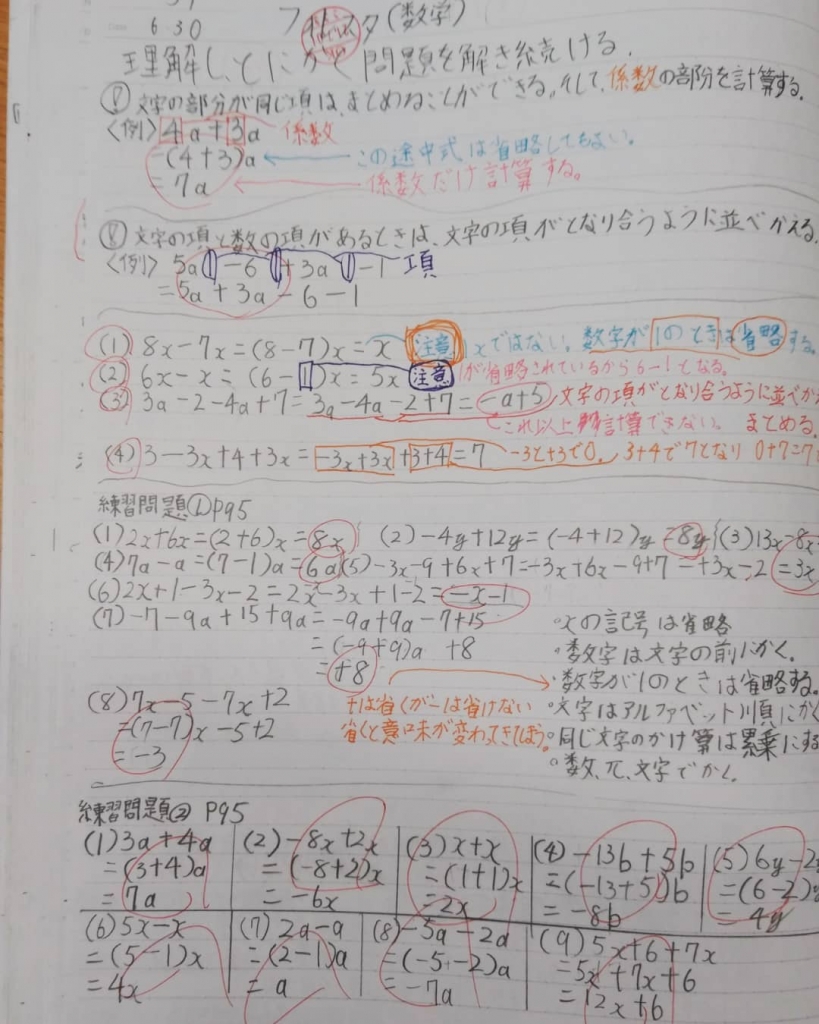 6 30
(数学)
理解し、とにかく問題を解き続ける.
⑦ 文字の部分が同じ項は、まとめることができる。そして、係数の部分を計算する.
〈例〉 4a+3a 係数
=(4+3)a ← この途中式は省略してもよい。
=7a ← 係数だけ計算する。
⑧ 文字の項と数の項があるときは、文字の項がとなり合うように並べかえる.
〈例〉 5a-6+3a-1 項
=5a+3a-6-1
(1) 8x-7x=(8-7)x=x 注意 1xではない。数字が1のときは省略する。
(2) 6x-x=(6-1)x=5x 注意 1が省略されているから6-1となる。
(3) 3a-2-4a+7=3a-4a-2+7=-a+5 文字の項がとなり合うように並べか
これ以上計算できない。 まとめる.
(4) 3-3x+4+3x=-3x+3x+3+4=7 -3と+3で0, 3+4で7となり 0+7=7
練習問題① P95
(1) 2x+6x=(2+6)x=8x (2) -4y+12y=(-4+12)y=8y (3) 13x-8x
(4) 7a-a=(7-1)a=6a (5) -3x-9+6x+7=-3x+6x-9+7=+3x-2=3x
(6) 2x+1-3x-2=2x-3x+1-2=-x-1
(7) -7-9a+15+9a=-9a+9a-7+15
=(-9+9)a +8
=+8
(8) 7x-5-7x+2
=(7-7)x-5+2
=-3
+は省くが-は省けない
省くと意味が変わってきてしまう。
・×の記号は省略
・数字は文字の前にかく。
・数字が1のときは省略する。
・文字はアルファベット順にかく
・同じ文字のかけ算は累乗にする
・数、π、文字でかく.
練習問題② P95
(1) 3a+4a
=(3+4)a
=7a
(2) -8x+2x
=(-8+2)x
=-6x
(3) x+x
=(1+1)x
=2x
(4) -13b+5b
=(-13+5)b
=-8b
(5) 6y-2
=(6-2)y
=4y
(6) 5x-x
=(5-1)x
=4x
(7) 2a-a
=(2-1)a
=a
(8) -5a-2a
=(-5-2)a
=-7a
(9) 5x+6+7x
=5x+7x+6
=12x+6